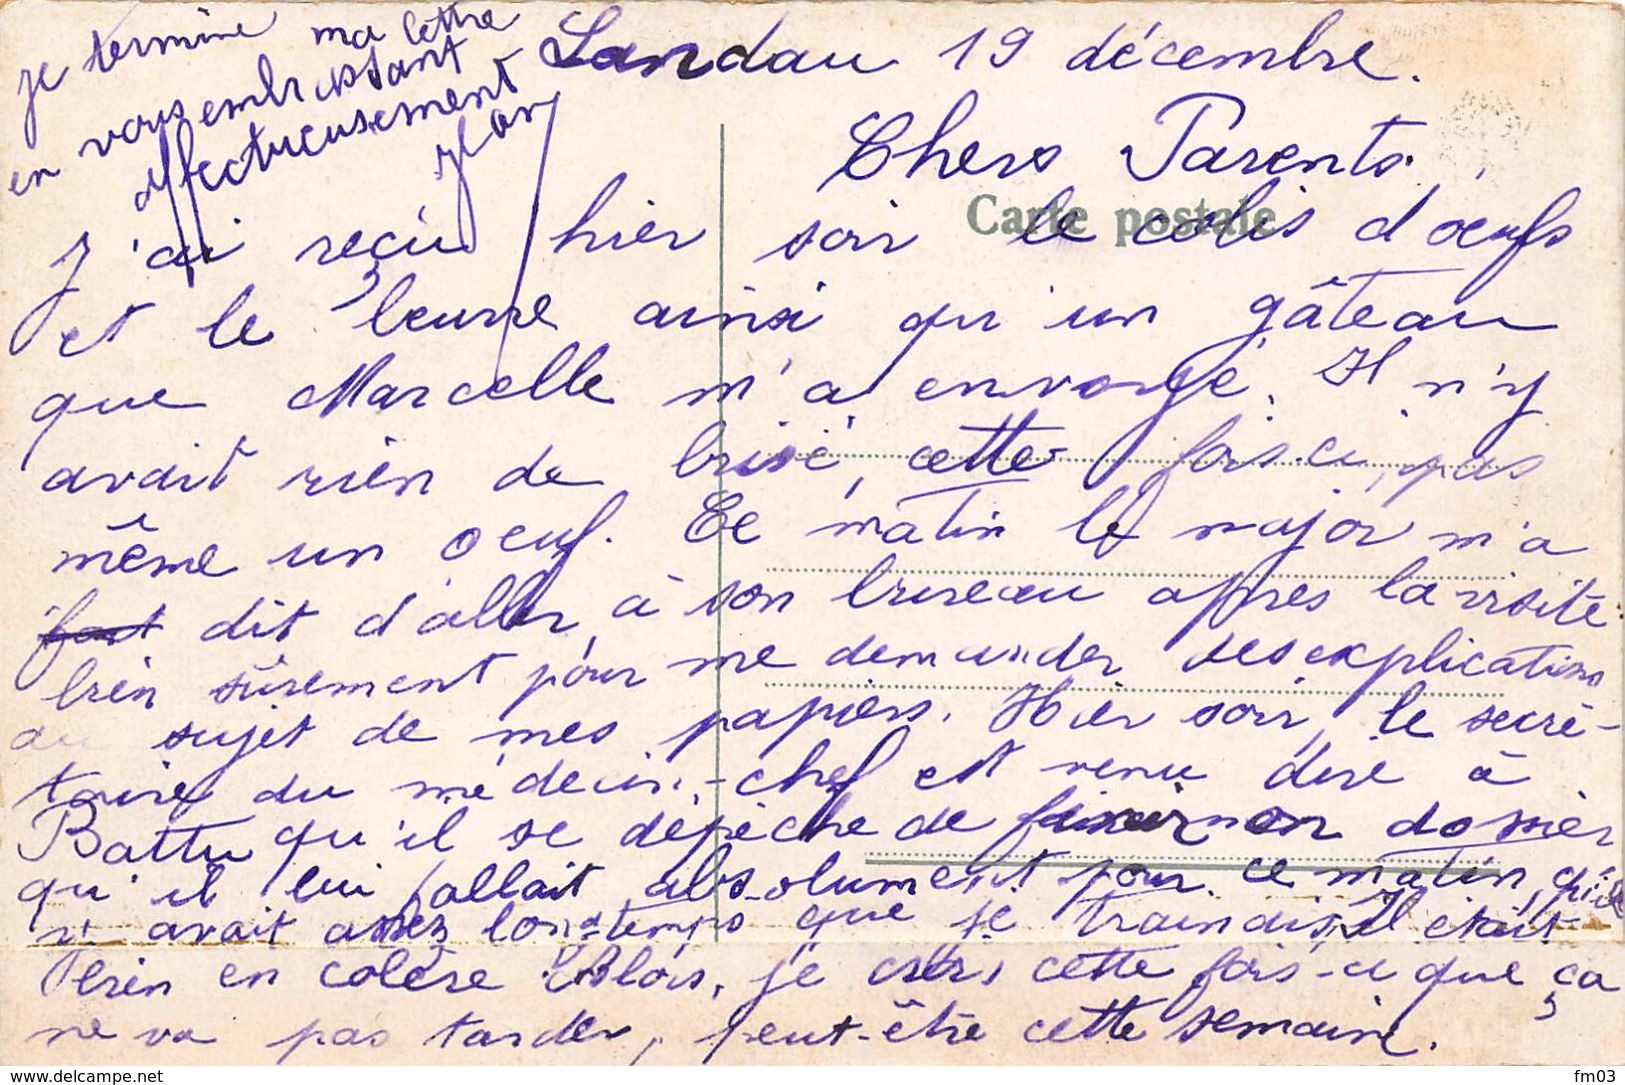 Landau 19 décembre.
Chers Parents,
Carte postale
J'ai reçu hier soir le colis d'oeufs
et le beurre ainsi qu'un gâteau
que Marcelle m'a envoyé. Il n'y
avait rien de brisé, cette fois-ci, pas
même un oeuf. Ce matin le major m'a
fait dit d'aller à son bureau après la visite
bien sûrement pour me demander des explications
au sujet de mes papiers. Hier soir, le secré-
taire du médecin-chef est venu dire à
Battu qu'il se dépêche de finir mon dossier
qu'il lui fallait absolument pour ce matin, qu'il
y avait assez longtemps que je traindis, Il était
bien en colère Blois, je crois cette fois-ci que ça
ne va pas tarder, peut-être cette semaine.
je termine ma lettre
en vous embrassant
affectueusement
delcampe.net
fm03